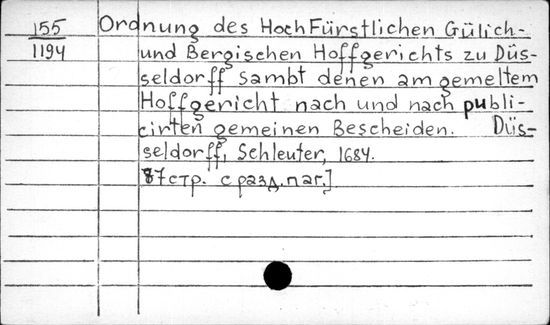 155 Ordnung des HochFürstlichen Gülich-
1194 und Bergischen Hoffgerichts zu Düs-
seldorff sambt denen am gemeltem
Hoffgericht nach und nach publi-
cirten gemeinen Bescheiden. Düs-
seldorff, Schleuter, 1684.
87стр. с разд.паг.]